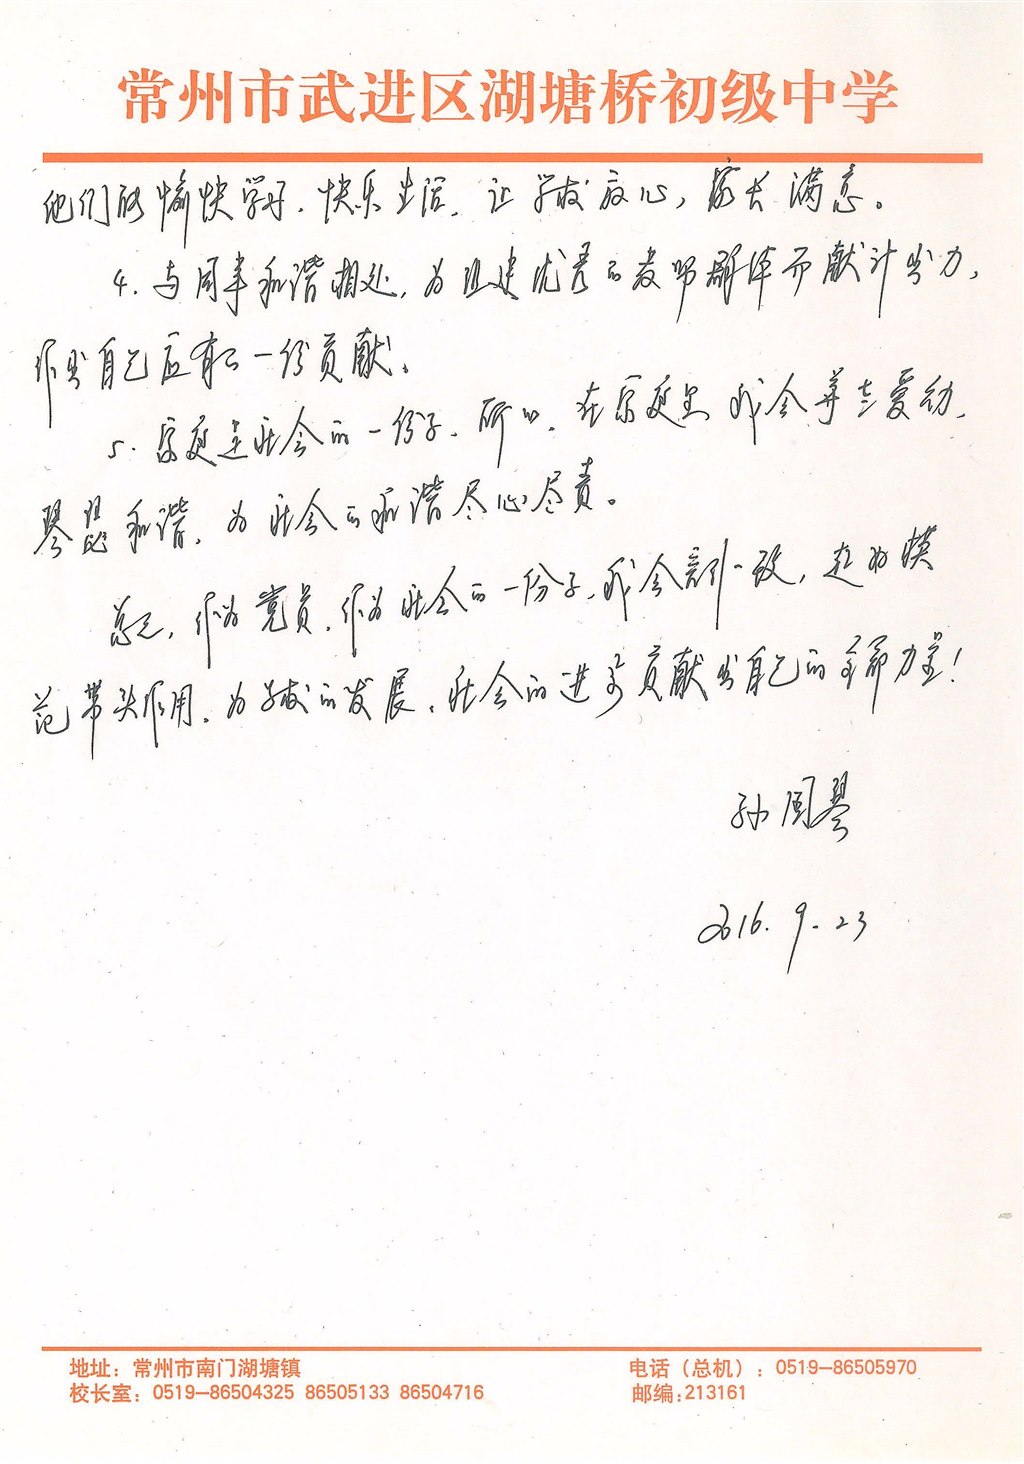 常州市武进区湖塘桥初级中学
他们能愉快学习.快乐生活.让学校放心,家长满意。
4.与同事和谐相处.为组建优秀的教师群体而献计出力,
作出自己应有的一份贡献。
5.家庭是社会的一份子.所以.在家庭里我会尊老爱幼.
琴瑟和谐.为社会的和谐尽心尽责。
总之.作为党员.作为社会的一份子.我会言行一致,起好模
范带头作用.为学校的发展.社会的进步贡献出自己的全部力量!
孙国琴
2016.9.23
地址：常州市南门湖塘镇
电话（总机）：0519—86505970
校长室：0519—86504325 86505133 86504716
邮编:213161